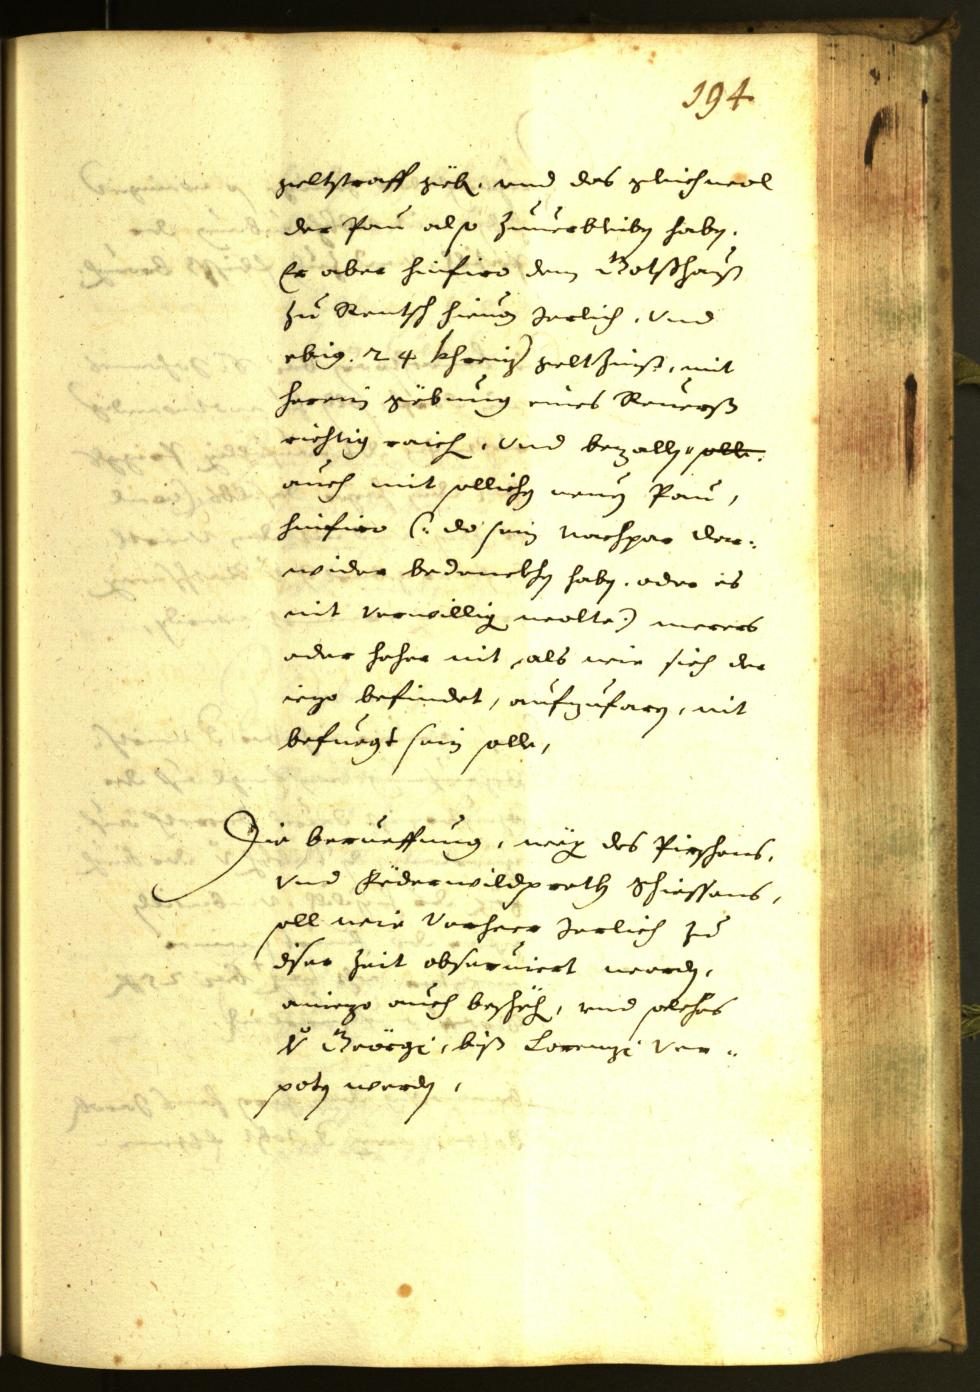 194
geltstraff gieb. vnd das gleichwol
der Pau also zuuerbleiben haben.
Er aber hinfüro dem Gotshauß
zu Rentsch hieuon Jerlich, vnd
ebig. 24 khreuz geltzinß, mit
herein gebung eines Reuerß
richtig raichen, vnd bezallen solle.
auch mit sollichen neuen Pau,
hinfüro (: da sein Nachpar dar-
wider bedenckhen haben. oder es
nit verwilligen wolte :) merers
oder höher nit, als wie sich der
iezo befindet, aufzufaren, nit
befuegt sein solle,
Die berueffung, wegen des Pirschens,
vnd Federwildprath Schiessens,
soll wie vorher Jerlich zu
diser Zeit obseruiert werden,
aniezo auch beschehen, vnd solches
v Geörgi, biß Lorenzi ver-
poten werden,